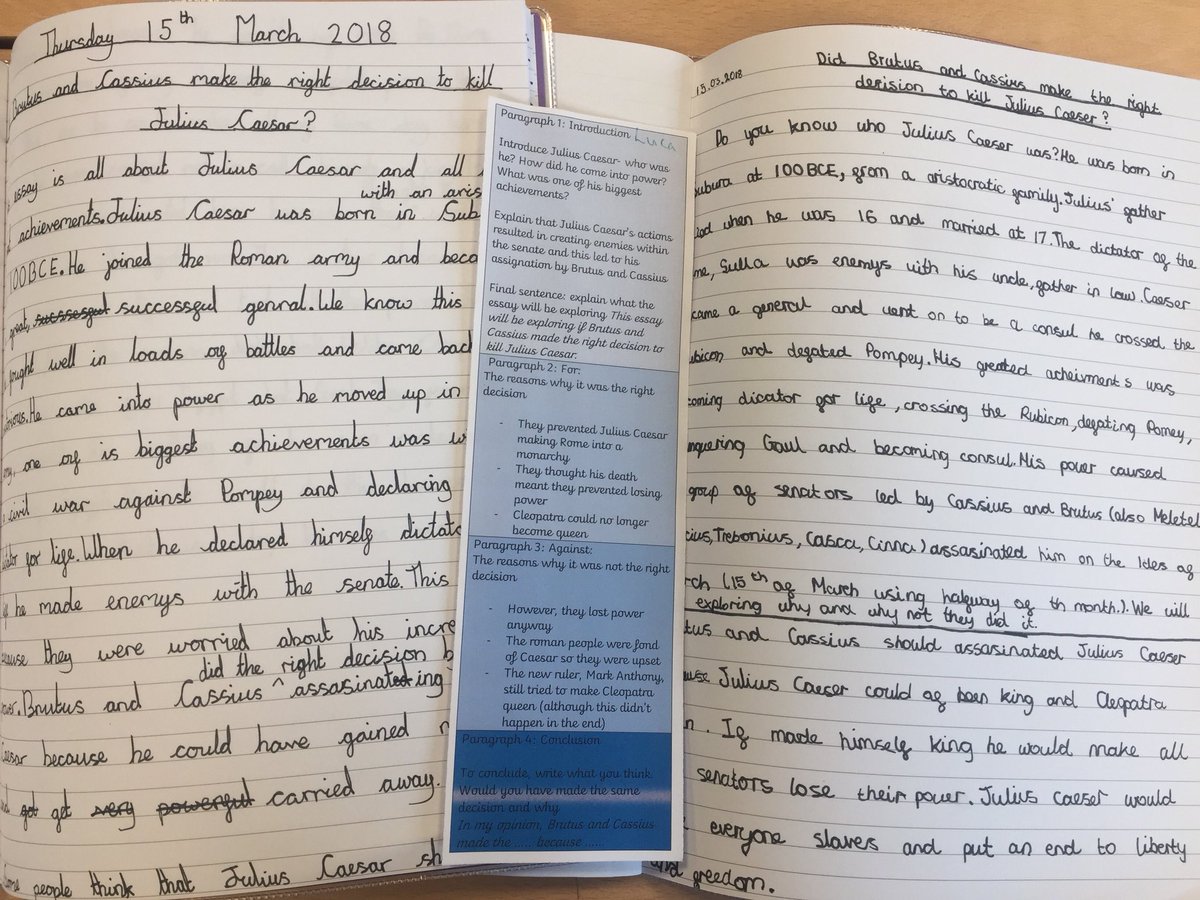 Thursday 15th March 2018
Brutus and Cassius make the right decision to kill
Julius Caesar?
essay is all about Julius Caesar and all
with an aris
achievements. Julius Caesar was born in Sub
100BCE. He joined the Roman army and beca
great, successful successful genral. We know this
fought well in loads of battles and came back
He came into power as he moved up in
one of is biggest achievements was
civil war against Pompey and declaring
for life. When he declared himself dictato
he made enemys with the senate. This
they were worried about his incre
did the right decision b
Brutus and Cassius ^ assasinateding
Caesar because he could have gained
got get very powerful carried away.
people think that Julius Caesar sh
Paragraph 1: Introduction Luca
Introduce Julius Caesar- who was
he? How did he come into power?
What was one of his biggest
achievements?
Explain that Julius Caesar's actions
resulted in creating enemies within
the senate and this led to his
assignation by Brutus and Cassius
Final sentence: explain what the
essay will be exploring This essay
will be exploring if Brutus and
Cassius made the right decision to
kill Julius Caesar.
Paragraph 2: For:
The reasons why it was the right
decision
- They prevented Julius Caesar
making Rome into a
monarchy
- They thought his death
meant they prevented losing
power
- Cleopatra could no longer
become queen
Paragraph 3: Against:
The reasons why it was not the right
decision
- However, they lost power
anyway
- The roman people were fond
of Caesar so they were upset
- The new ruler, Mark Anthony,
still tried to make Cleopatra
queen (although this didn't
happen in the end)
Paragraph 4: Conclusion
To conclude, write what you think.
Would you have made the same
decision and why
In my opinion, Brutus and Cassius
made the ..... because ......
15.03.2018
Did Brutus and Cassius make the right
decision to kill Julius Caeser?
Do you know who Julius Caeser was? He was born in
ubura at 100BCE, from a aristocratic family. Julius' father
when he was 16 and married at 17. The dictator of the
me, Sulla was enemys with his uncle, father in law. Caeser
came a general and went on to be a consul he crossed the
ubicon and defated Pompey. His greated acheivments was
coming dicator for life, crossing the Rubicon, defating Pomey,
nquering Gaul and becoming consul. His power caused
group of senators led by Cassius and Brutus (also Metelel
cius, Trebonius, Casca, Cinna) assasinated him on the Ides of
rch (15th of March using halfway of th month.). We will
exploring why and why not they did it.
tus and Cassius should assasinated Julius Caeser
Julius Caeser could of been king and Cleopatra
n. If made himself king he would make all
senators lose their power. Julius caeser would
everyone slavers and put an end to liberty
and freedom.